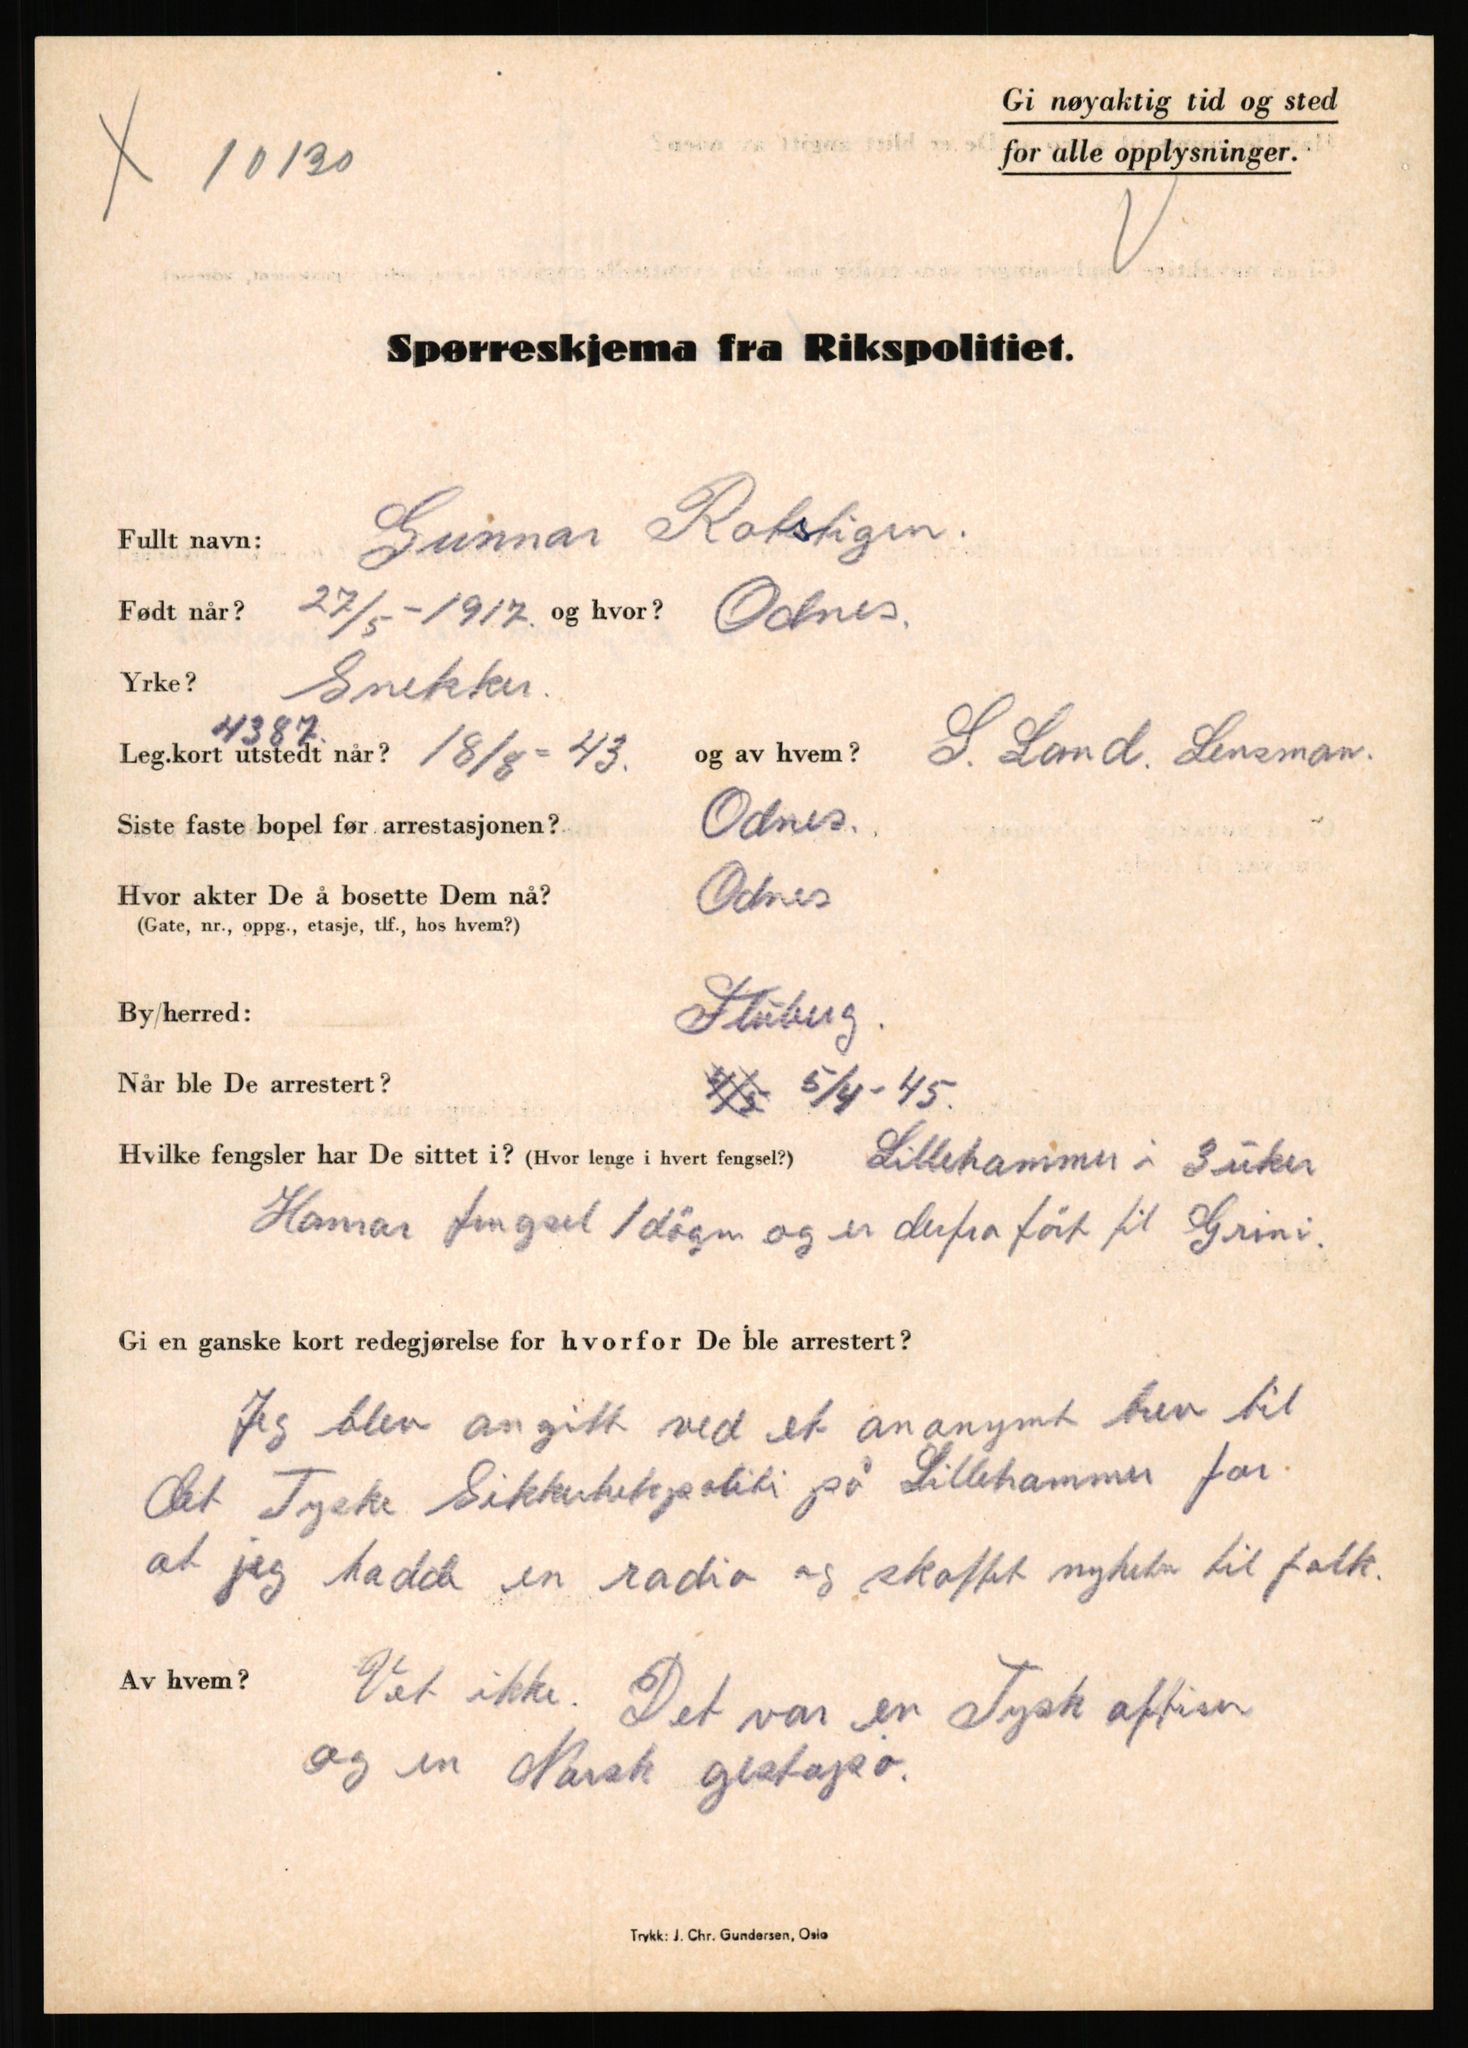 Gi nøyaktig tid og sted
for alle opplysninger.
X 10130
V
Spørreskjema fra Rikspolitiet.
Fullt navn: Gunnar Rotstigen.
Født når? 27/5-1917. og hvor? Odnes.
Yrke? Snekker.
4387.
Leg.kort utstedt når? 18/8-43. og av hvem? S. Land. Lensman.
Siste faste bopel før arrestasjonen? Odnes.
Hvor akter De å bosette Dem nå? Odnes
(Gate, nr., oppg., etasje, tlf., hos hvem?)
By/herred: Fluberg.
Når ble De arrestert? 5/4-45.
Hvilke fengsler har De sittet i? (Hvor lenge i hvert fengsel?) Lillehammer i 3 uker
Hamar fengsel 1 dögn og er derfra fört til Grini.
Gi en ganske kort redegjørelse for hvorfor De ble arrestert?
Jeg blev angitt ved et anonymt brev til
det Tyske Sikkerhetspoliti på Lillehammer for
at jeg hadde en radio og skaffet nyheter til folk.
Av hvem? Vet ikke. Det var en Tysk offiser
og en Norsk gestapo.
Trykk: J. Chr. Gundersen, Oslo